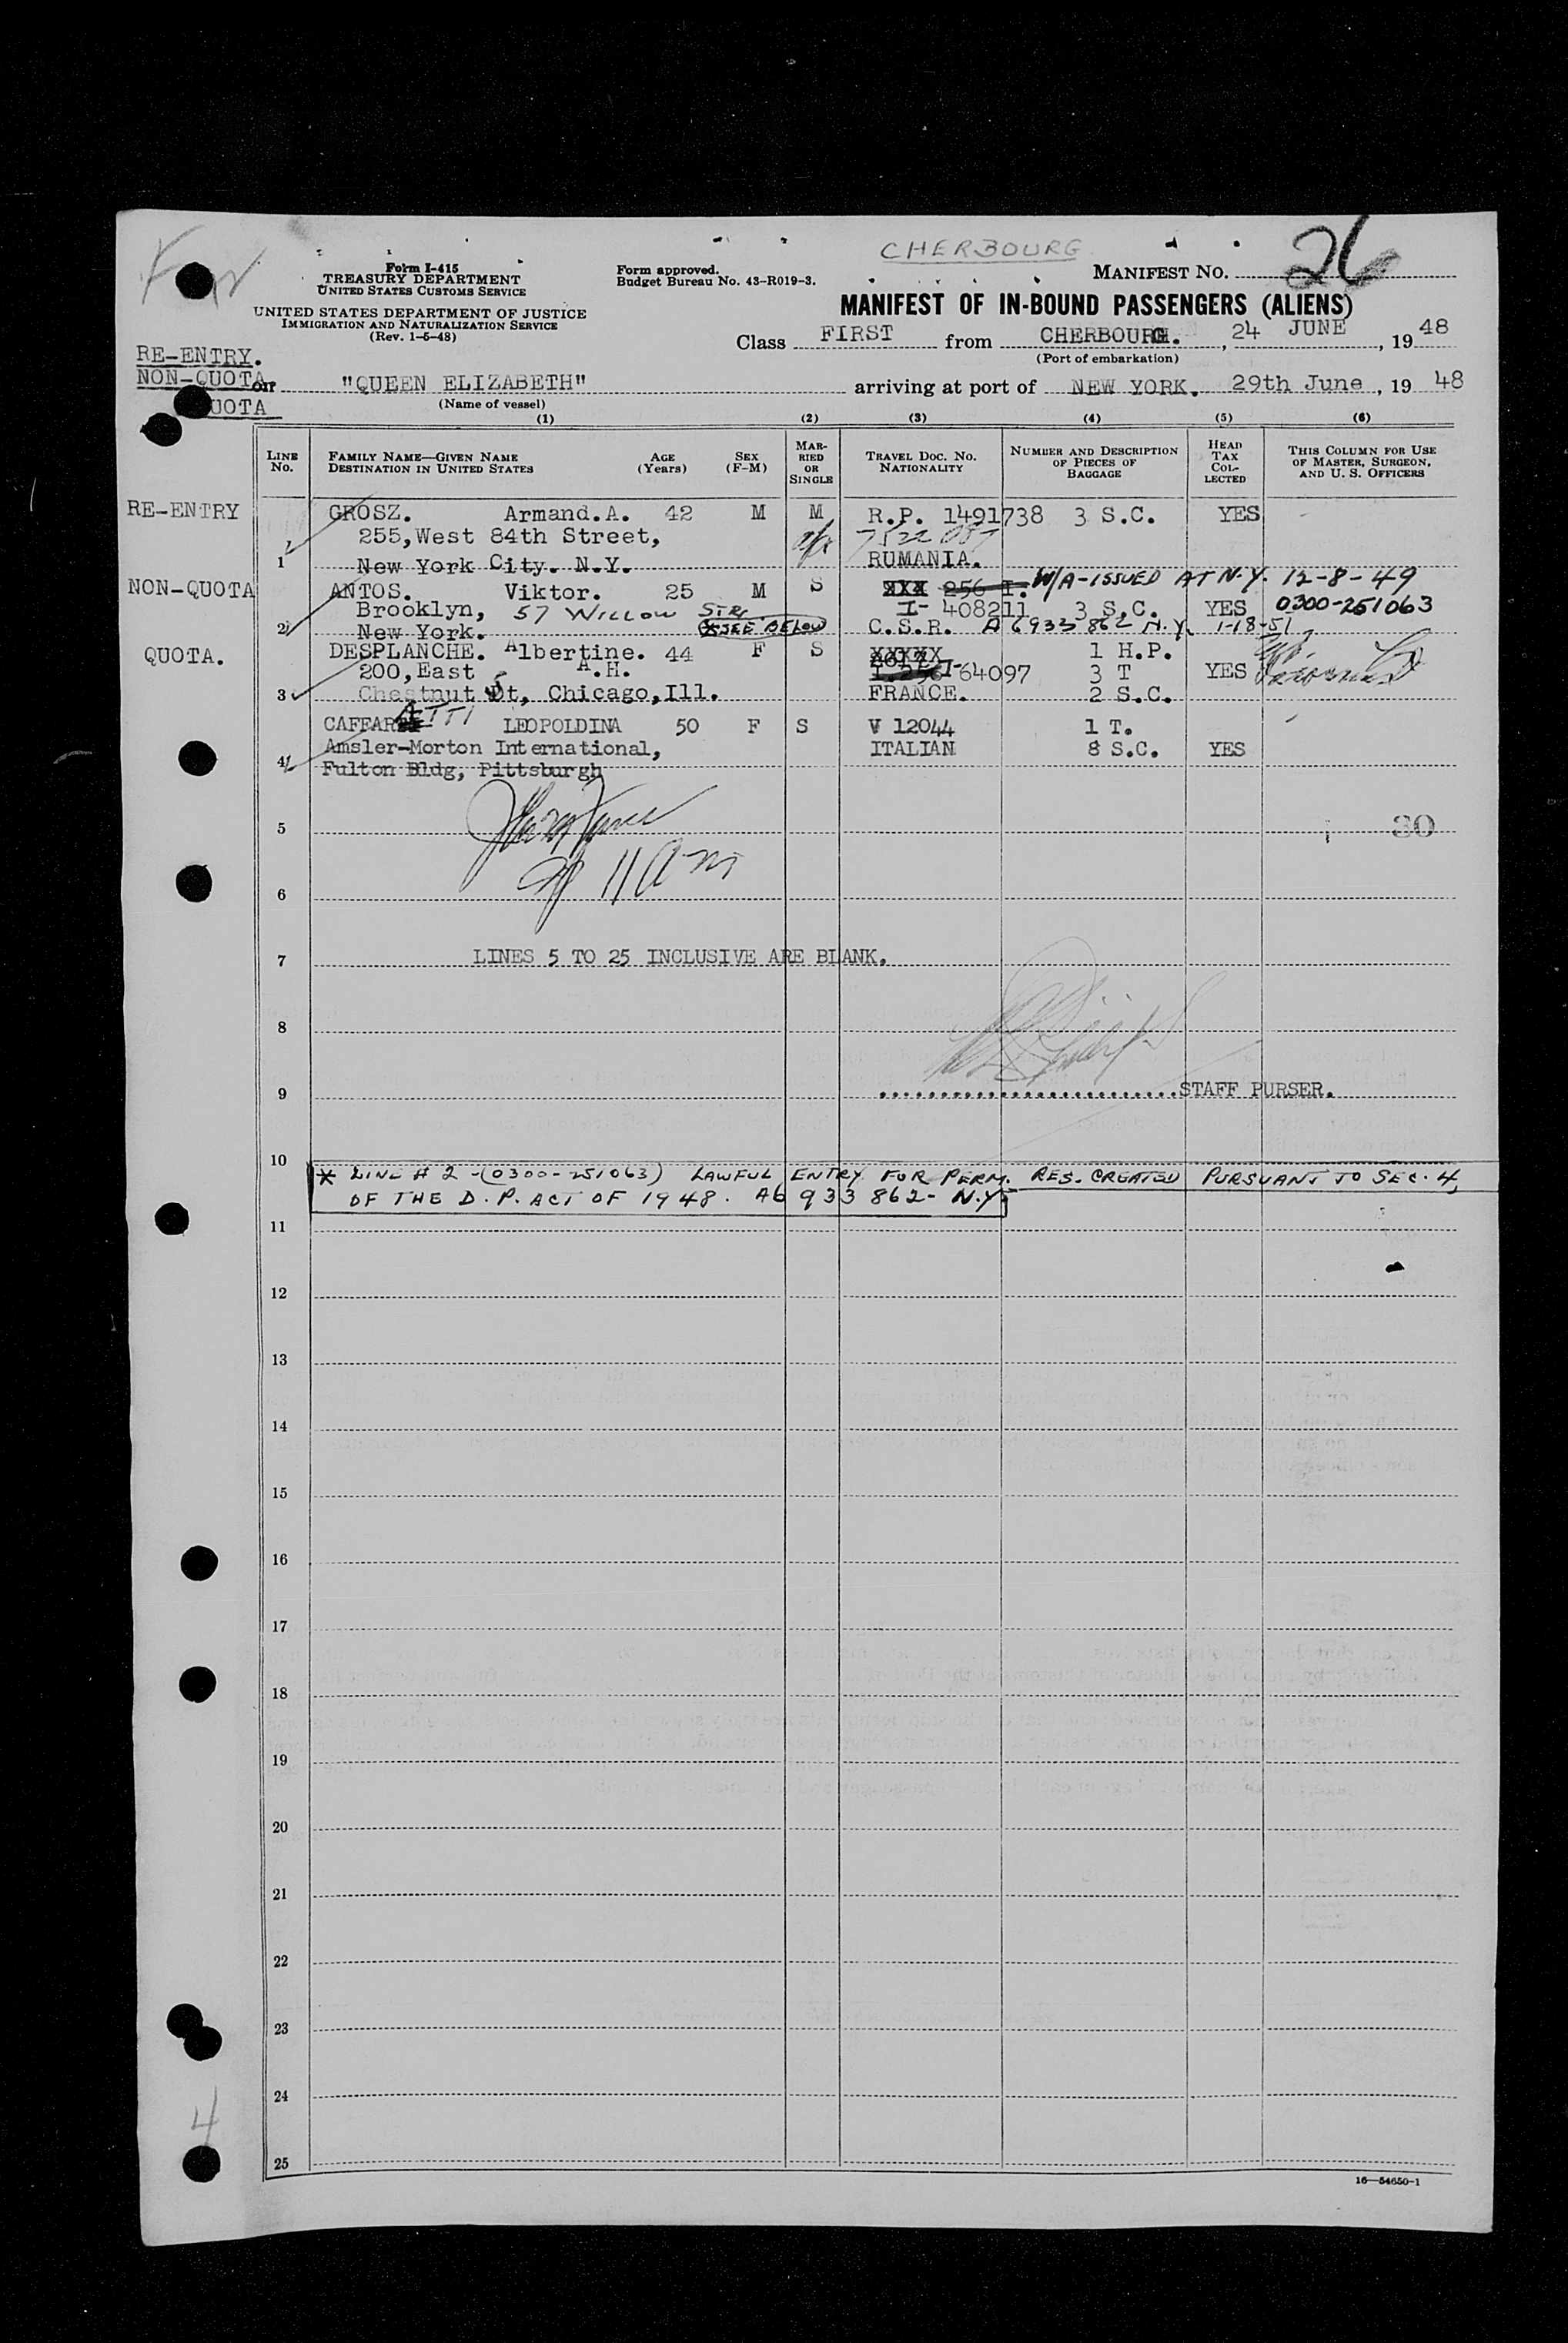 CHERBOURG
26
Form I-415
TREASURY DEPARTMENT
UNITED STATES CUSTOMS SERVICE
UNITED STATES DEPARTMENT OF JUSTICE
IMMIGRATION AND NATURALIZATION SERVICE
(Rev. 1-5-48)
Form approved.
Budget Bureau No. 43-R019-3.
MANIFEST NO.
MANIFEST OF IN-BOUND PASSENGERS (ALIENS)
Class FIRST from CHERBOURG. , 24 JUNE , 19 48
(Port of embarkation)
RE-ENTRY.
NON-QUOTA
QUOTA
on "QUEEN ELIZABETH" arriving at port of NEW YORK. 29th June , 19 48
(Name of vessel)
(1) (2) (3) (4) (5) (6)
LINE NO.
FAMILY NAME—GIVEN NAME
DESTINATION IN UNITED STATES
AGE (Years)
SEX (F-M)
MARRIED OR SINGLE
TRAVEL DOC. NO. NATIONALITY
NUMBER AND DESCRIPTION OF PIECES OF BAGGAGE
HEAD TAX COLLECTED
THIS COLUMN FOR USE OF MASTER, SURGEON, AND U. S. OFFICERS
RE-ENTRY GROSZ. Armand.A. 42 M M R.P. 1491738 3 S.C. YES
255,West 84th Street,
1 New York City. N.Y. RUMANIA.
NON-QUOTA ANTOS. Viktor. 25 M S XXX 256 I. W/A-ISSUED AT N.Y. 12-8-49
Brooklyn, 57 WILLOW STR. I- 408211 3 S.C. YES 0300-251063
2 New York. *SEE BELOW C.S.R. A 6933 862 N.Y. 1-18-51
QUOTA. DESPLANCHE. Albertine. 44 F S XXXXX 1 H.P.
200,East A.H. I-64097 3 T YES
3 Chestnut St, Chicago,Ill. FRANCE. 2 S.C.
CAFFARATTI LEOPOLDINA 50 F S V 12044 1 T.
Amsler-Morton International, ITALIAN 8 S.C. YES
4 Fulton Bldg, Pittsburgh
5 30
11 am
6
7 LINES 5 TO 25 INCLUSIVE ARE BLANK.
8
9 STAFF PURSER.
10
* LINE # 2 -(0300-251063) LAWFUL ENTRY FOR PERM. RES. CREATED PURSUANT TO SEC. 4,
OF THE D. P. ACT OF 1948. A6 933 862- N.Y.
11
12
13
14
15
16
17
18
19
20
21
22
23
24
4
25
16—54650-1